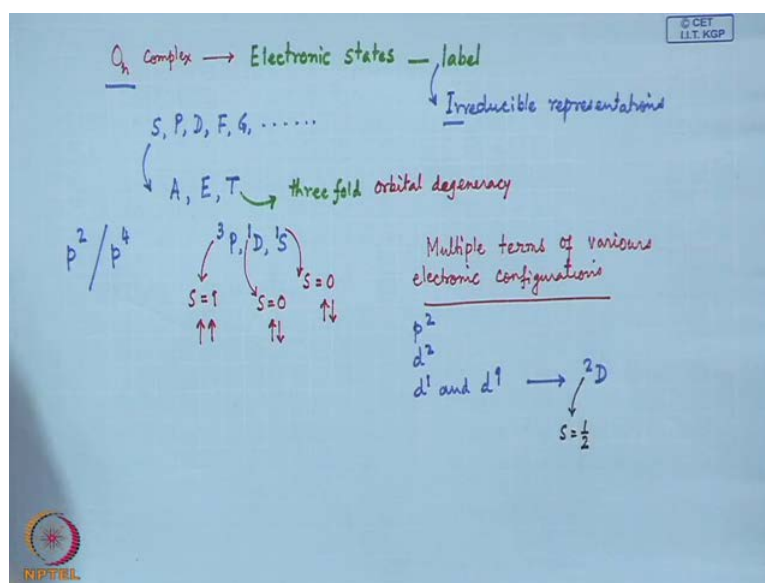 © CET
I.I.T. KGP
Oh Complex → Electronic states — label
Irreducible representations
S, P, D, F, G, ......
A, E, T → three fold orbital degeneracy
p²/p⁴
³P, ¹D, ¹S
S=1
S=0
S=0
↑↑
↑↓
↑↓
Multiple terms of variours
electronic configurations
p²
d²
d¹ and d⁹ → ²D
S = 1/2
NPTEL